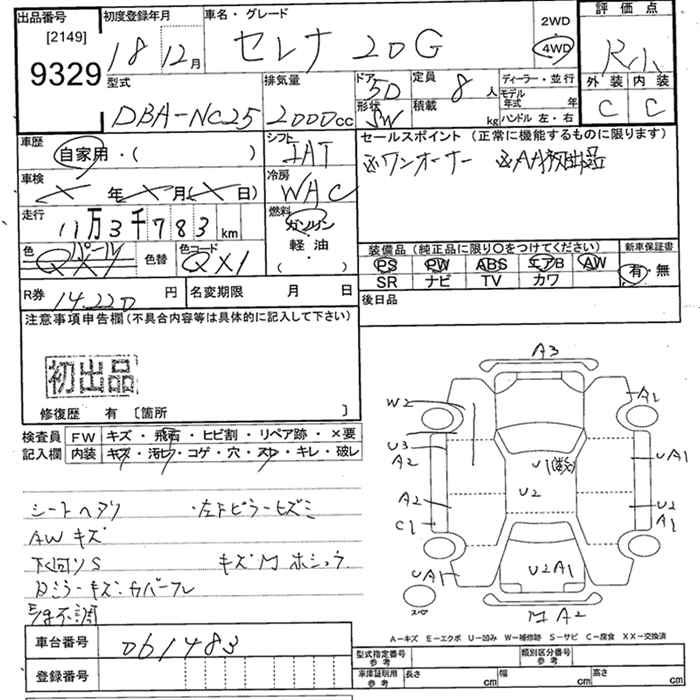 出品番号
[2149]
9329
初度登録年月
18 12月
車名・グレード
セレナ 20G
2WD
4WD
評価点
R小
外装 内装
C C
型式
DBA-NC25
排気量
2000cc
ドア
5D
形状
SW
定員
8 人
積載
kg
ディーラー・並行
モデル年式 年
ハンドル 左・右
車歴
自家用・( )
車検
年 月( 日)
走行
11万3千783 km
色 パール
QX1
色替
色コード
QX1
シフト
IAT
冷房
WAC
燃料
ガソリン
軽油
( ・ )
セールスポイント (正常に機能するものに限ります)
※ワンオーナー ※AA初出品
装備品 (純正品に限り〇をつけてください)
PS PW ABS エアB AW
SR ナビ TV カワ
新車保証書
有・無
後日品
R券
14220 円
名変期限 月 日
注意事項申告欄(不具合内容等は具体的に記入して下さい)
初出品
修復歴 有 [箇所 ]
検査員記入欄
FW キズ・飛石・ヒビ割・リペア跡・×要
内装 キズ・汚レ・コゲ・穴・スレ・キレ・破レ
シートヘタリ ・左Fピラーヒズミ
AWキズ
下回りS キズM ホシュウ
Dミラーキズ・カバーフレ
車台番号
061483
登録番号
A3
W2
A1
U3
A2
U1
UA1
U2
A2
C1
U2
A1
UA1
U2A1
MA2
A-キズ E-エクボ U-凹み W-補修跡 S-サビ C-腐食 XX-交換済
型式指定番号
参考
類別区分番号
参考
車庫証明用
参考
長さ cm
幅 cm
高さ cm